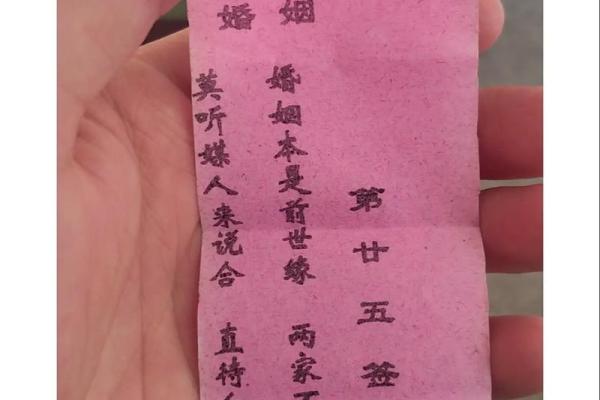 婚姻
第廿五签
婚姻本是前世缘 两家
莫听媒人来说合 直待